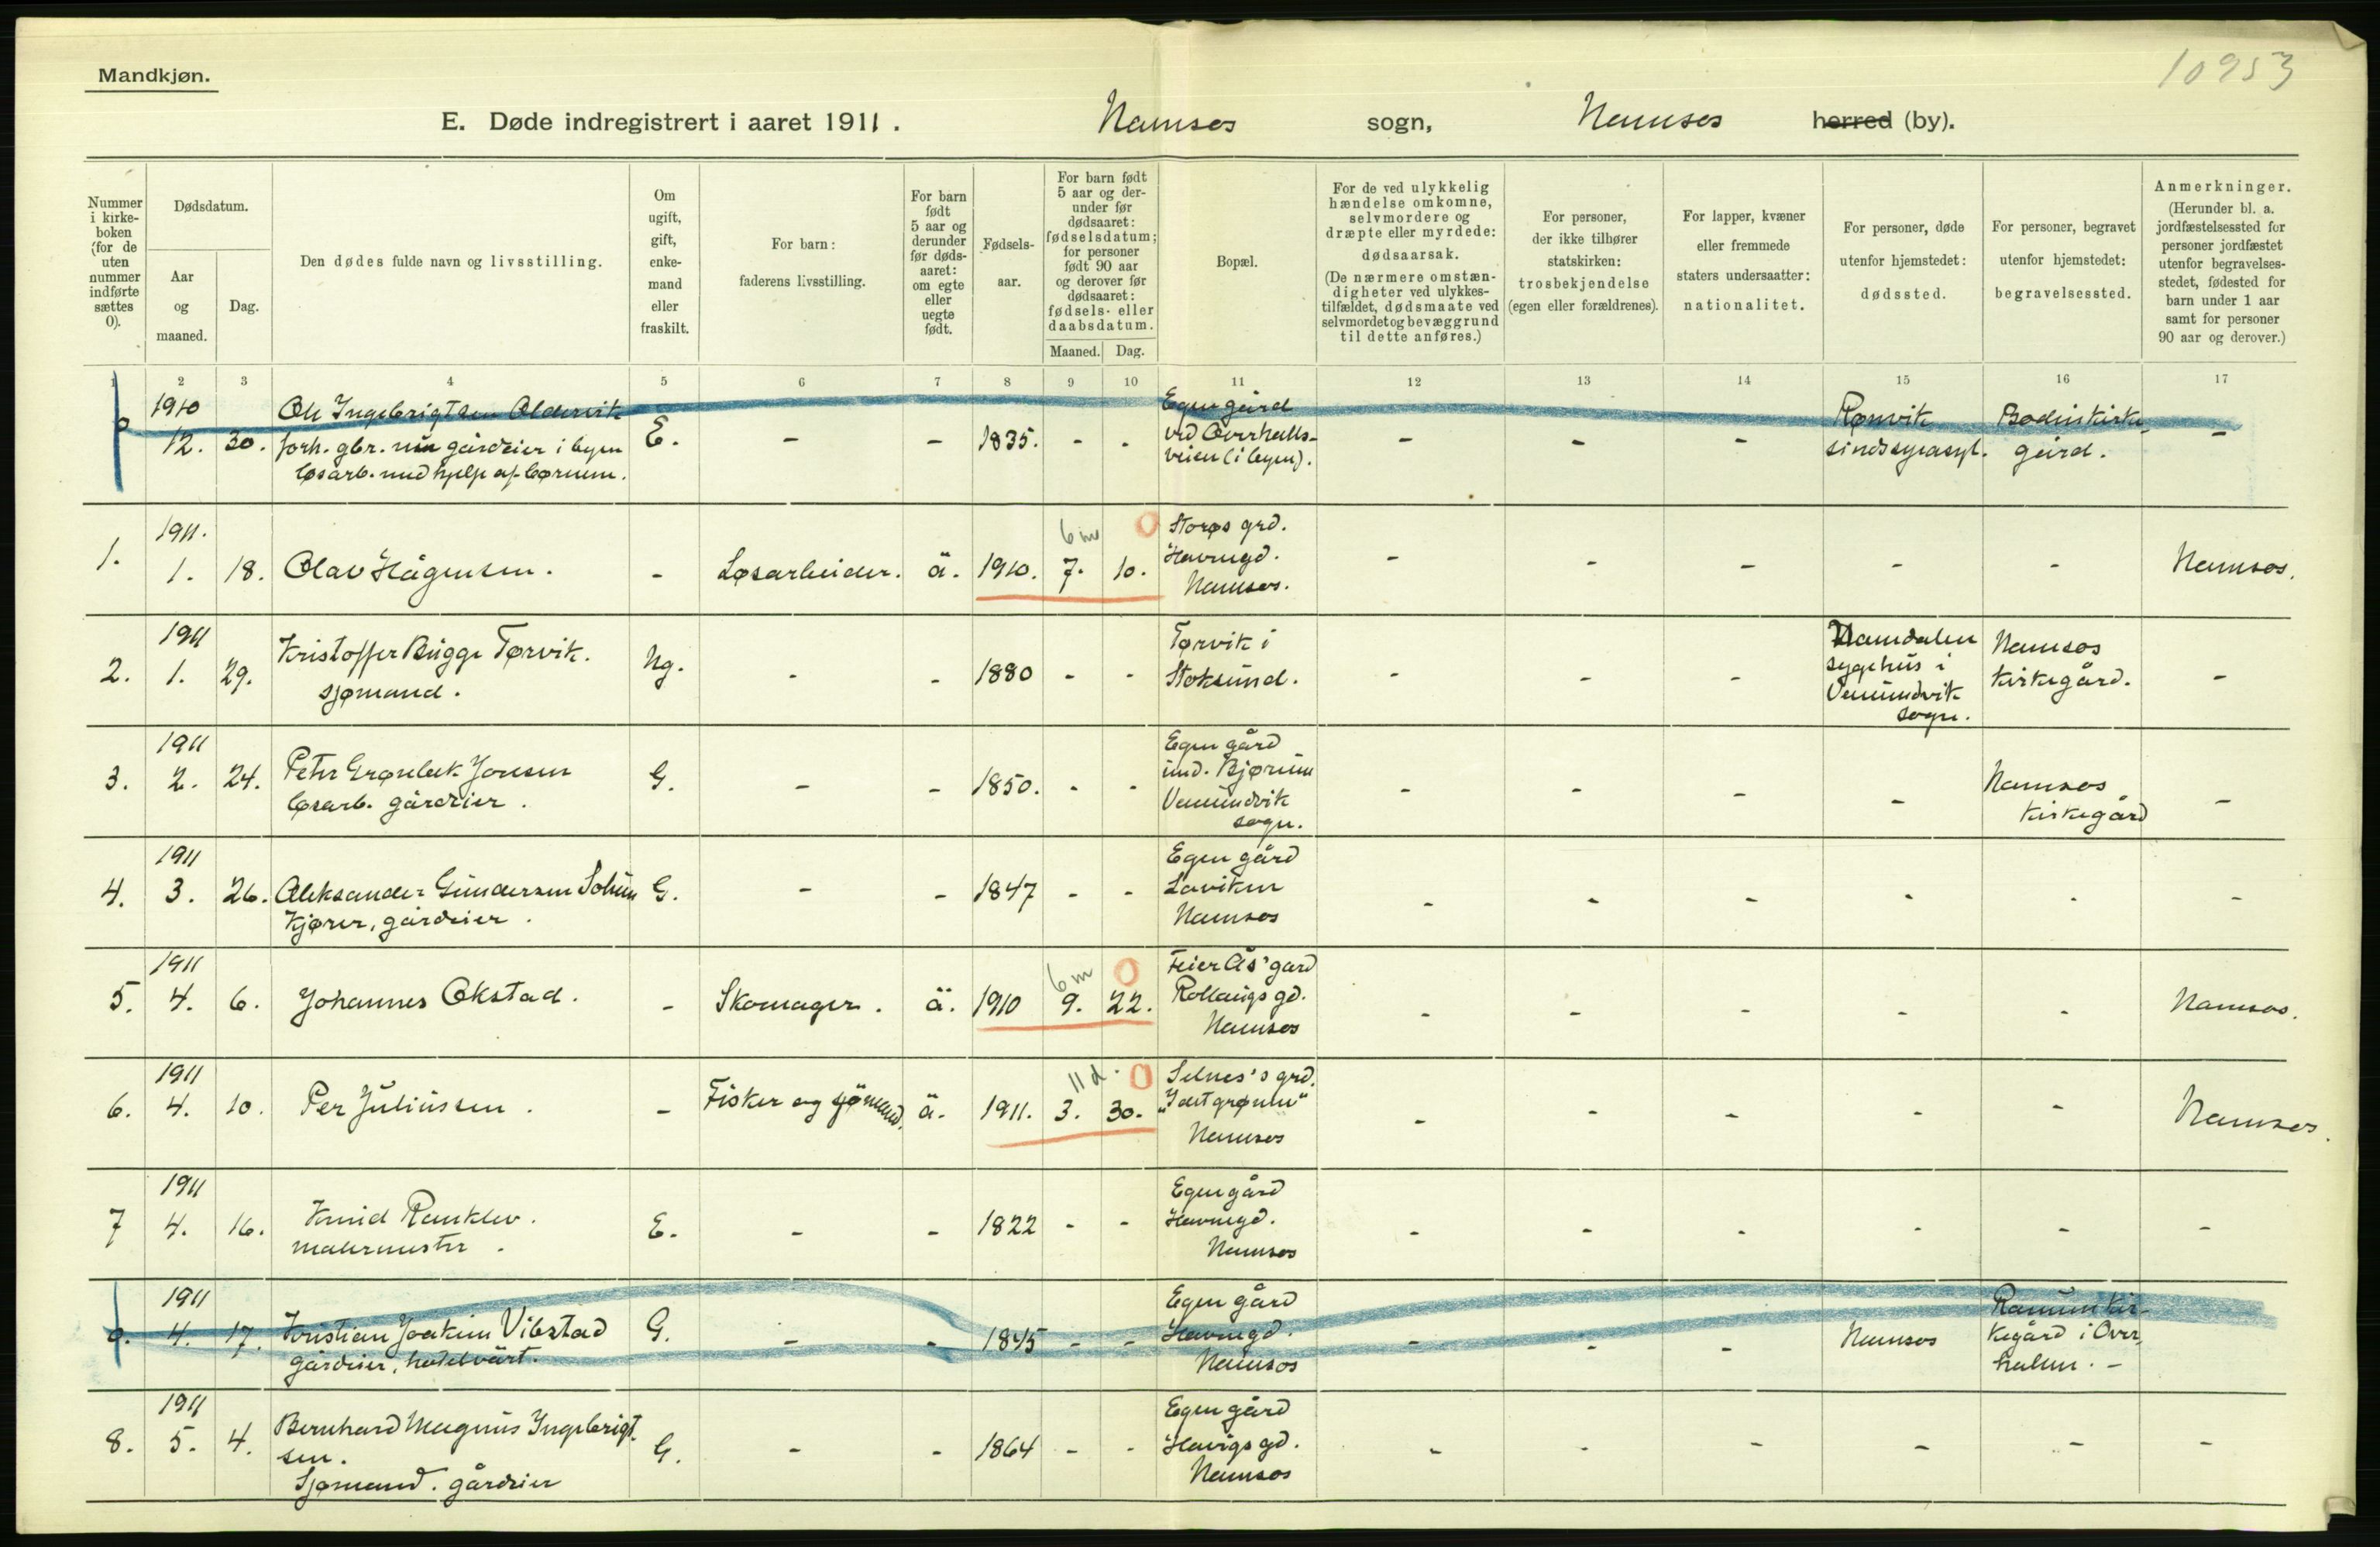 10953
Mandkjøn.
E. Døde indregistrert i aaret 1911. Namsos sogn, Namsos herred (by).
Nummer i kirkeboken (for de uten nummer indførte sættes 0).
Dødsdatum.
Aar og maaned.
Dag.
Den dødes fulde navn og livsstilling.
Om ugift, gift, enkemand eller fraskilt.
For barn: faderens livsstilling.
For barn født 5 aar og derunder før dødsaaret: om egte eller uegte født.
Fødselsaar.
For barn født 5 aar og derunder før dødsaaret: fødselsdatum; for personer født 90 aar og derover før dødsaaret: fødsels- eller daabsdatum.
Maaned. Dag.
Bopæl.
For de ved ulykkelig hændelse omkomne, selvmordere og dræpte eller myrdede: dødsaarsak.
(De nærmere omstændigheter ved ulykkestilfældet, dødsmaate ved selvmordet og bevæggrund til dette anføres.)
For personer, der ikke tilhører statskirken: trosbekjendelse (egen eller forældrenes).
For lapper, kvæner eller fremmede staters undersaatter: nationalitet.
For personer, døde utenfor hjemstedet: dødssted.
For personer, begravet utenfor hjemstedet: begravelsessted.
Anmerkninger.
(Herunder bl. a. jordfæstelsessted for personer jordfæstet utenfor begravelsesstedet, fødested for barn under 1 aar samt for personer 90 aar og derover.)
1 2 3 4 5 6 7 8 9 10 11 12 13 14 15 16 17
0 1910 12. 30. Ole Ingebrigtsen Aldervik
forh. gbr. nu gårdeier i byen
løsarb. med hjelp af børnene.
E. - - 1835. - -
Egen gård
ved Overhalls-
veien (i byen).
- - -
Rønvik
sindssygeasyl.
Bodin kirke-
gård.
-
1. 1911. 1. 18. Olav Hågensen. - Løsarbeider. ä. 1910. 7. 10.
6 m 0
Storøs grd.
Havnegd.
Namsos.
- - - - - Namsos.
2. 1911 1. 29. Kristoffer Brigge Tørvik.
sjømand.
Ug. - - 1880 - -
Tørvik i
Stoksund.
- - -
Namdalen
sygehus i
Vemundvik
sogn.
Namsos
kirkegård.
-
3. 1911 2. 24. Peter Grønbek Jonsen
løsarb. gårdeier.
G. - - 1850. - -
Egen gård
und. Bjørum
Vemundvik
sogn.
- - - -
Namsos
kirkegård
-
4. 1911 3. 26. Aleksander Gundersen Solum
Kjører, gårdeier.
G. - - 1847 - -
Egen gård
Laviken
Namsos
- - - - - -
5. 1911 4. 6. Johannes Okstad. - Skomager. ä. 1910 9. 22.
6 m 0
Feier Ås' gard
Rollaugs gd.
Namsos
- - - - - Namsos.
6. 1911 4. 10. Per Juliussen. - Fisker og sjömand. ä. 1911. 3. 30.
11 d. 0
Selnes's grd.
"I det grønne"
Namsos
- - - - - Namsos.
7 1911 4. 16. Knud Ranklev.
malermester.
E. - - 1822 - -
Egen gård
Havnegd.
Namsos
- - - - - -
0. 1911 4. 17. Kristian Joakim Vibstad
gårdeier, hotelvärt.
G. - - 1845 - -
Egen gård
Havnegd.
Namsos
- - -
Namsos
Ranum kir-
kegård i Over-
hallen. -
8. 1911 5. 4. Bernhard Magnus Ingebrigt-
sen.
Sjømand. gårdeier
G. - - 1864 - -
Egen gård
Havigs gd.
Namsos
- - - - - -